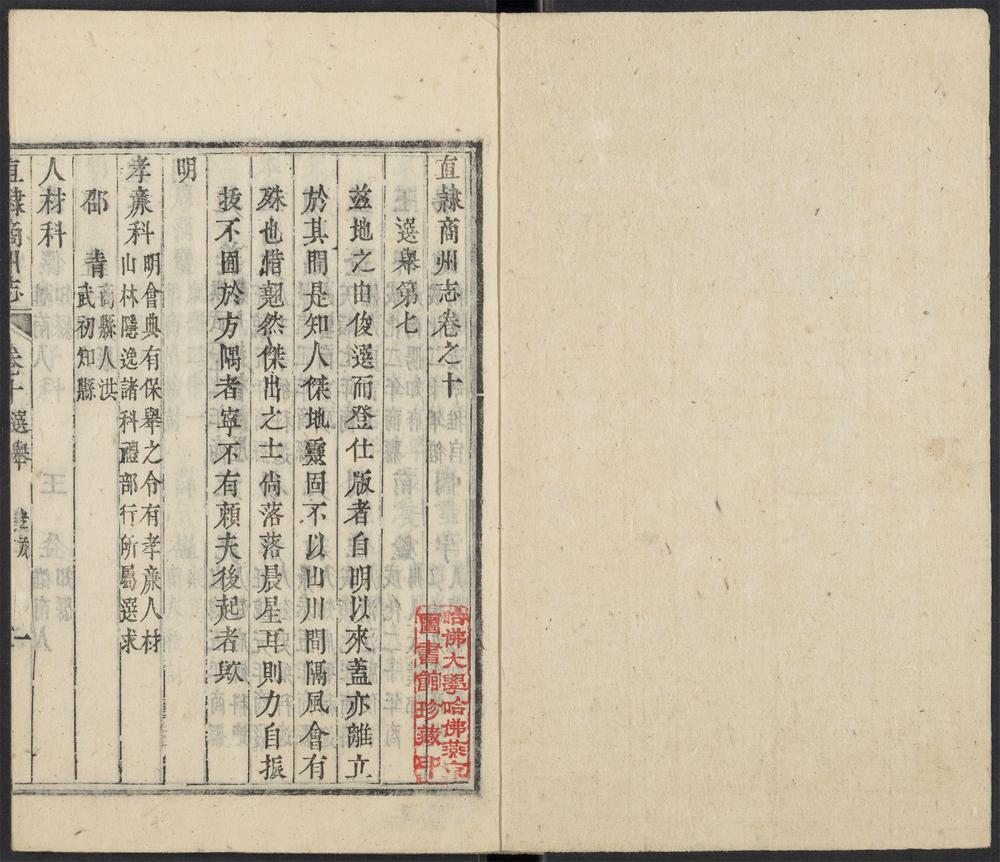 直隸商州志卷之十
選舉第七
茲地之由俊選而登仕版者自明以來蓋亦離立
於其間是知人傑地靈固不以山川間隔風會有
殊也惜翹然傑出之士尙落落晨星耳則力自振
拔不囿於方隅者寧不有賴夫後起者歟
明
孝廉科
明會典有保舉之令有孝廉人材
山林隱逸諸科禮部行所屬選求
邵青
商縣人洪
武初知縣
人材科
直隸商州志
卷十
選舉
一
哈佛大學哈佛燕京
圖書館珍藏印